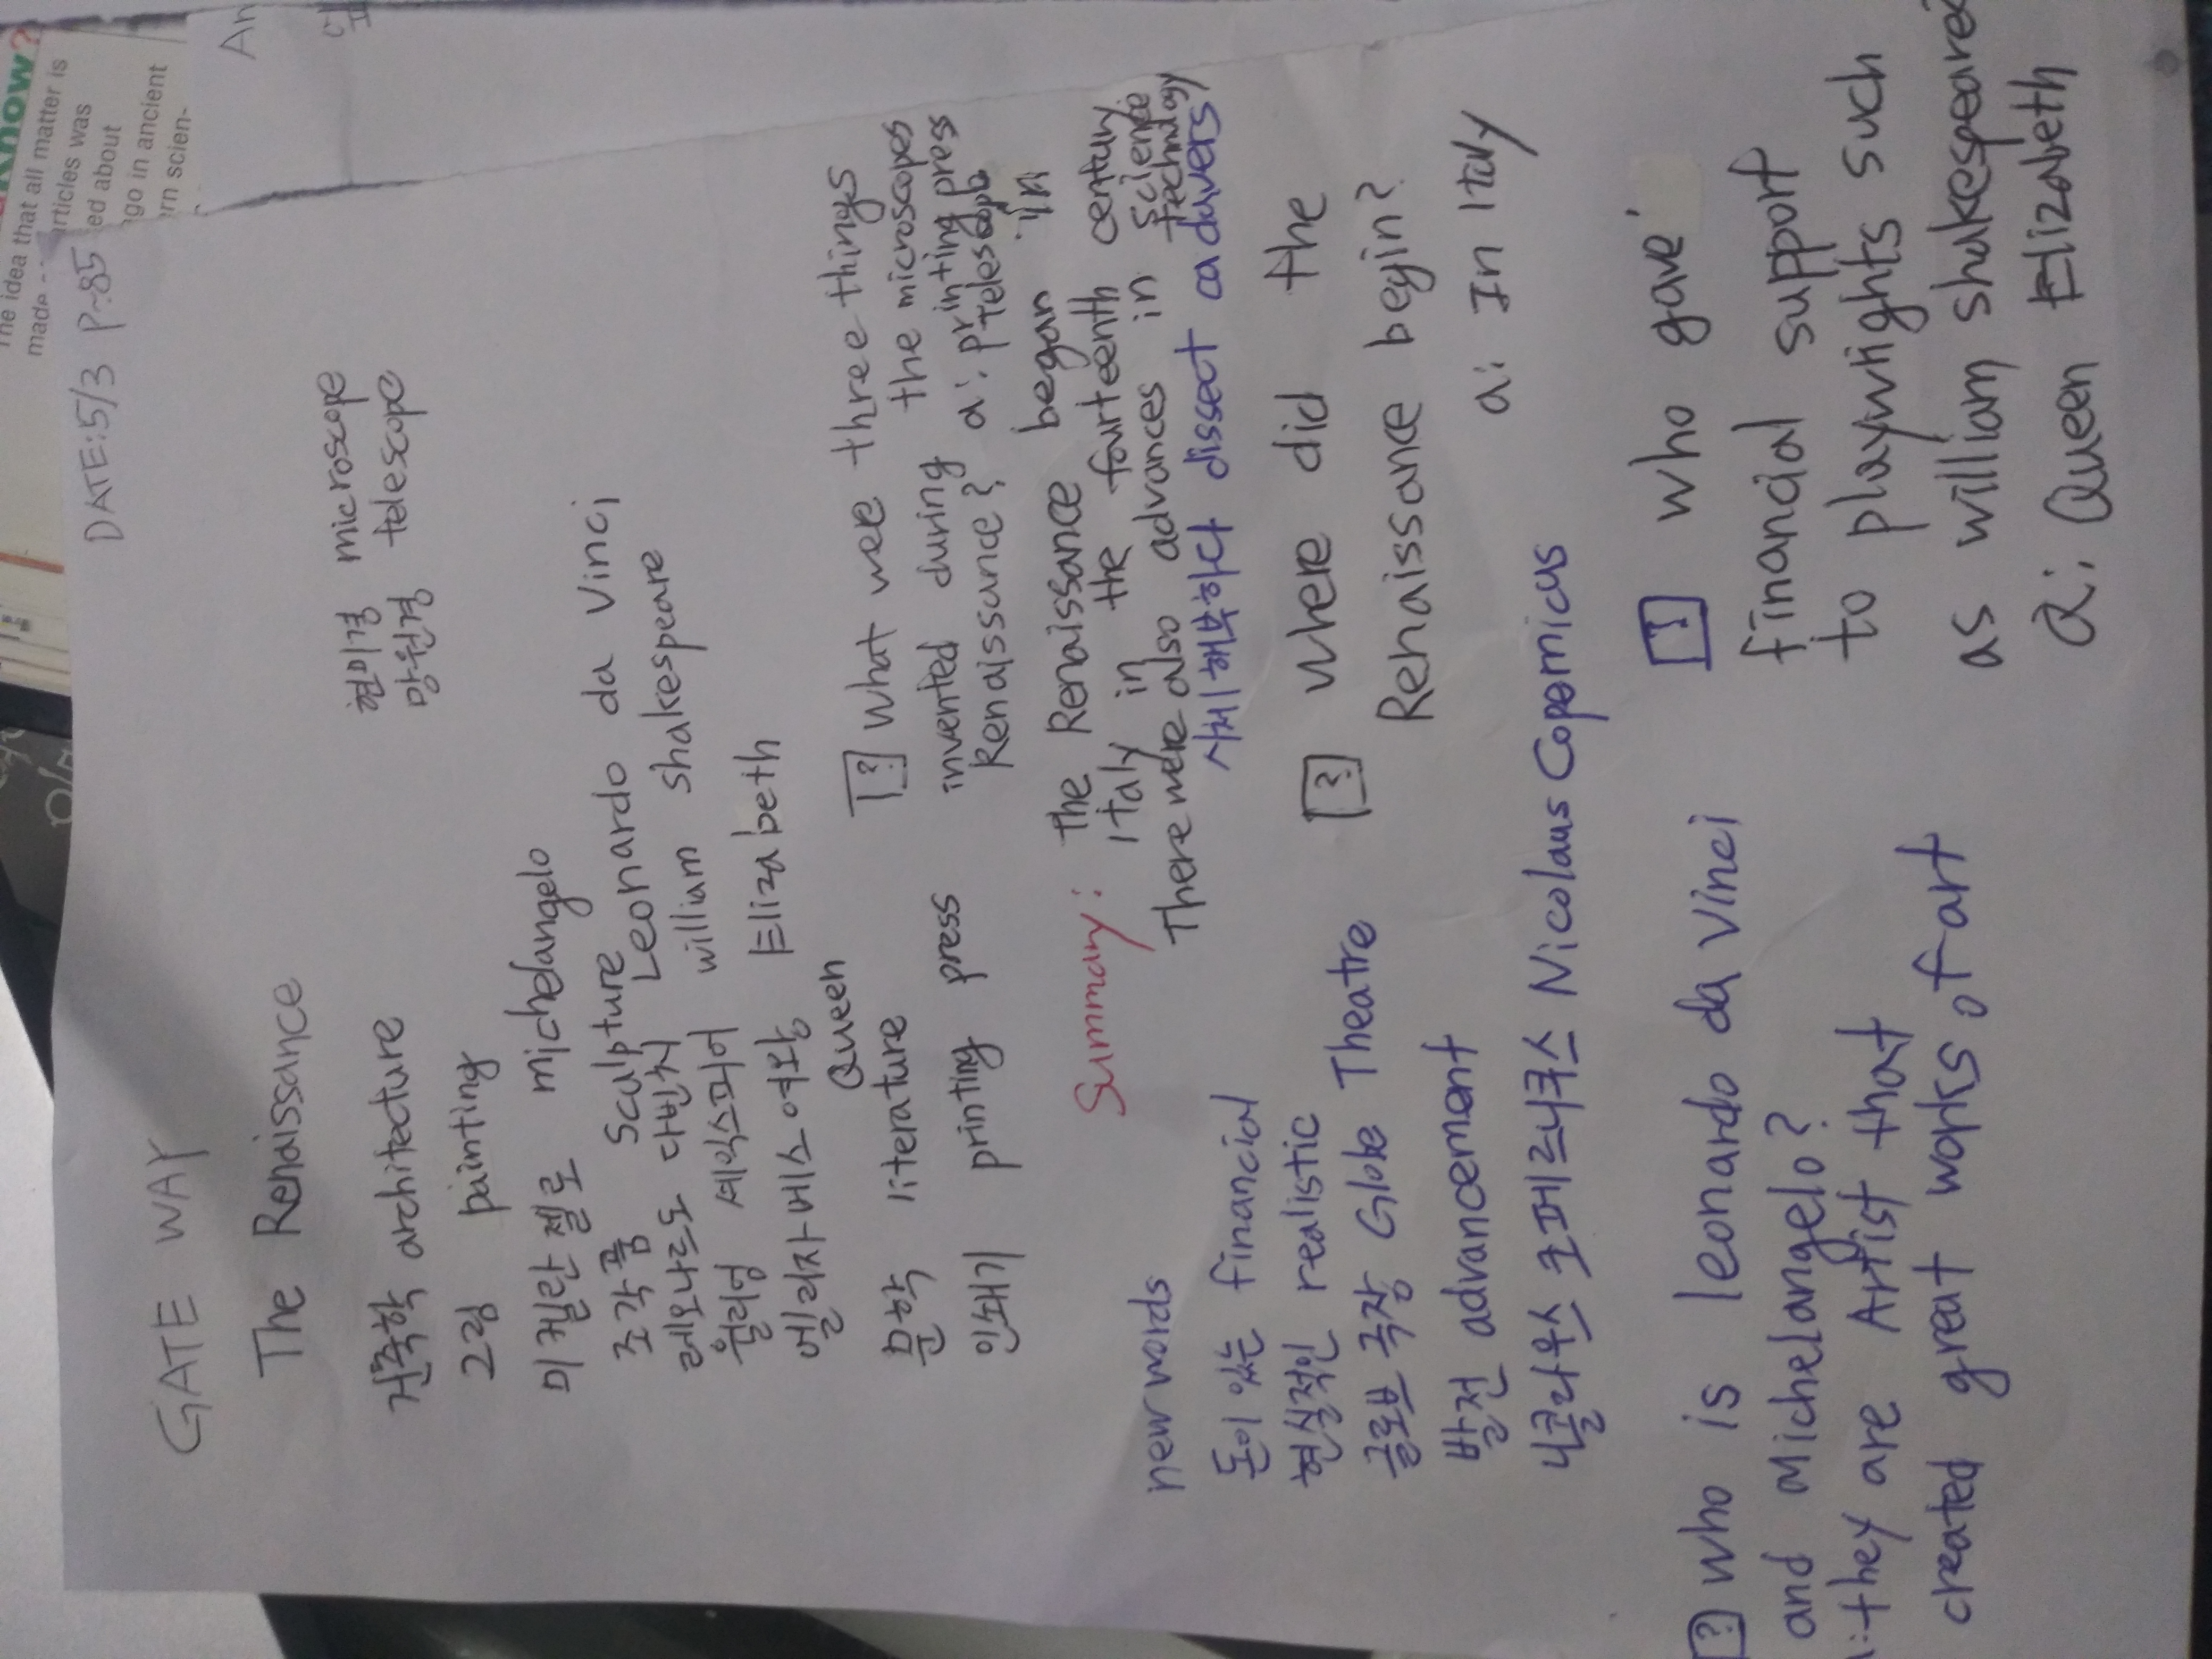 GATE WAY
DATE:5/3 P~85
The Renaissance
건축학 architecture
현미경 microscope
그림 painting
망원경 telescope
미켈란젤로 michelangelo
조각품 sculpture
레오나르도 다빈치 Leonardo da Vinci
윌리엄 셰익스피어 willium shakespeare
엘리자베스 여왕 Elizabeth
Queen
문학 literature
인쇄기 printing press
? What wee three things
invented during the microscopes
Renaissance? a: printing press
telescope
Summary: The Renaissance began in
Italy in the fourteenth century
There were also advances in science
technology
시체해부하다 dissect cadavers
new words
돈이 있는 financial
현실적인 realistic
글로브 극장 Globe Theatre
발전 advancement
니콜라우스 코페르니쿠스 Nicolaus Copernicus
? where did the
Renaissance begin?
a: In Italy
? who is leonardo da Vinci
and Michelangelo?
they are Artist that
created great works of art
? who gave
financial support
to playwrights such
as william shakespeare?
a: Queen Elizabeth
know?
The idea that all matter is
made
articles was
ed about
ago in ancient
rn scien-
An